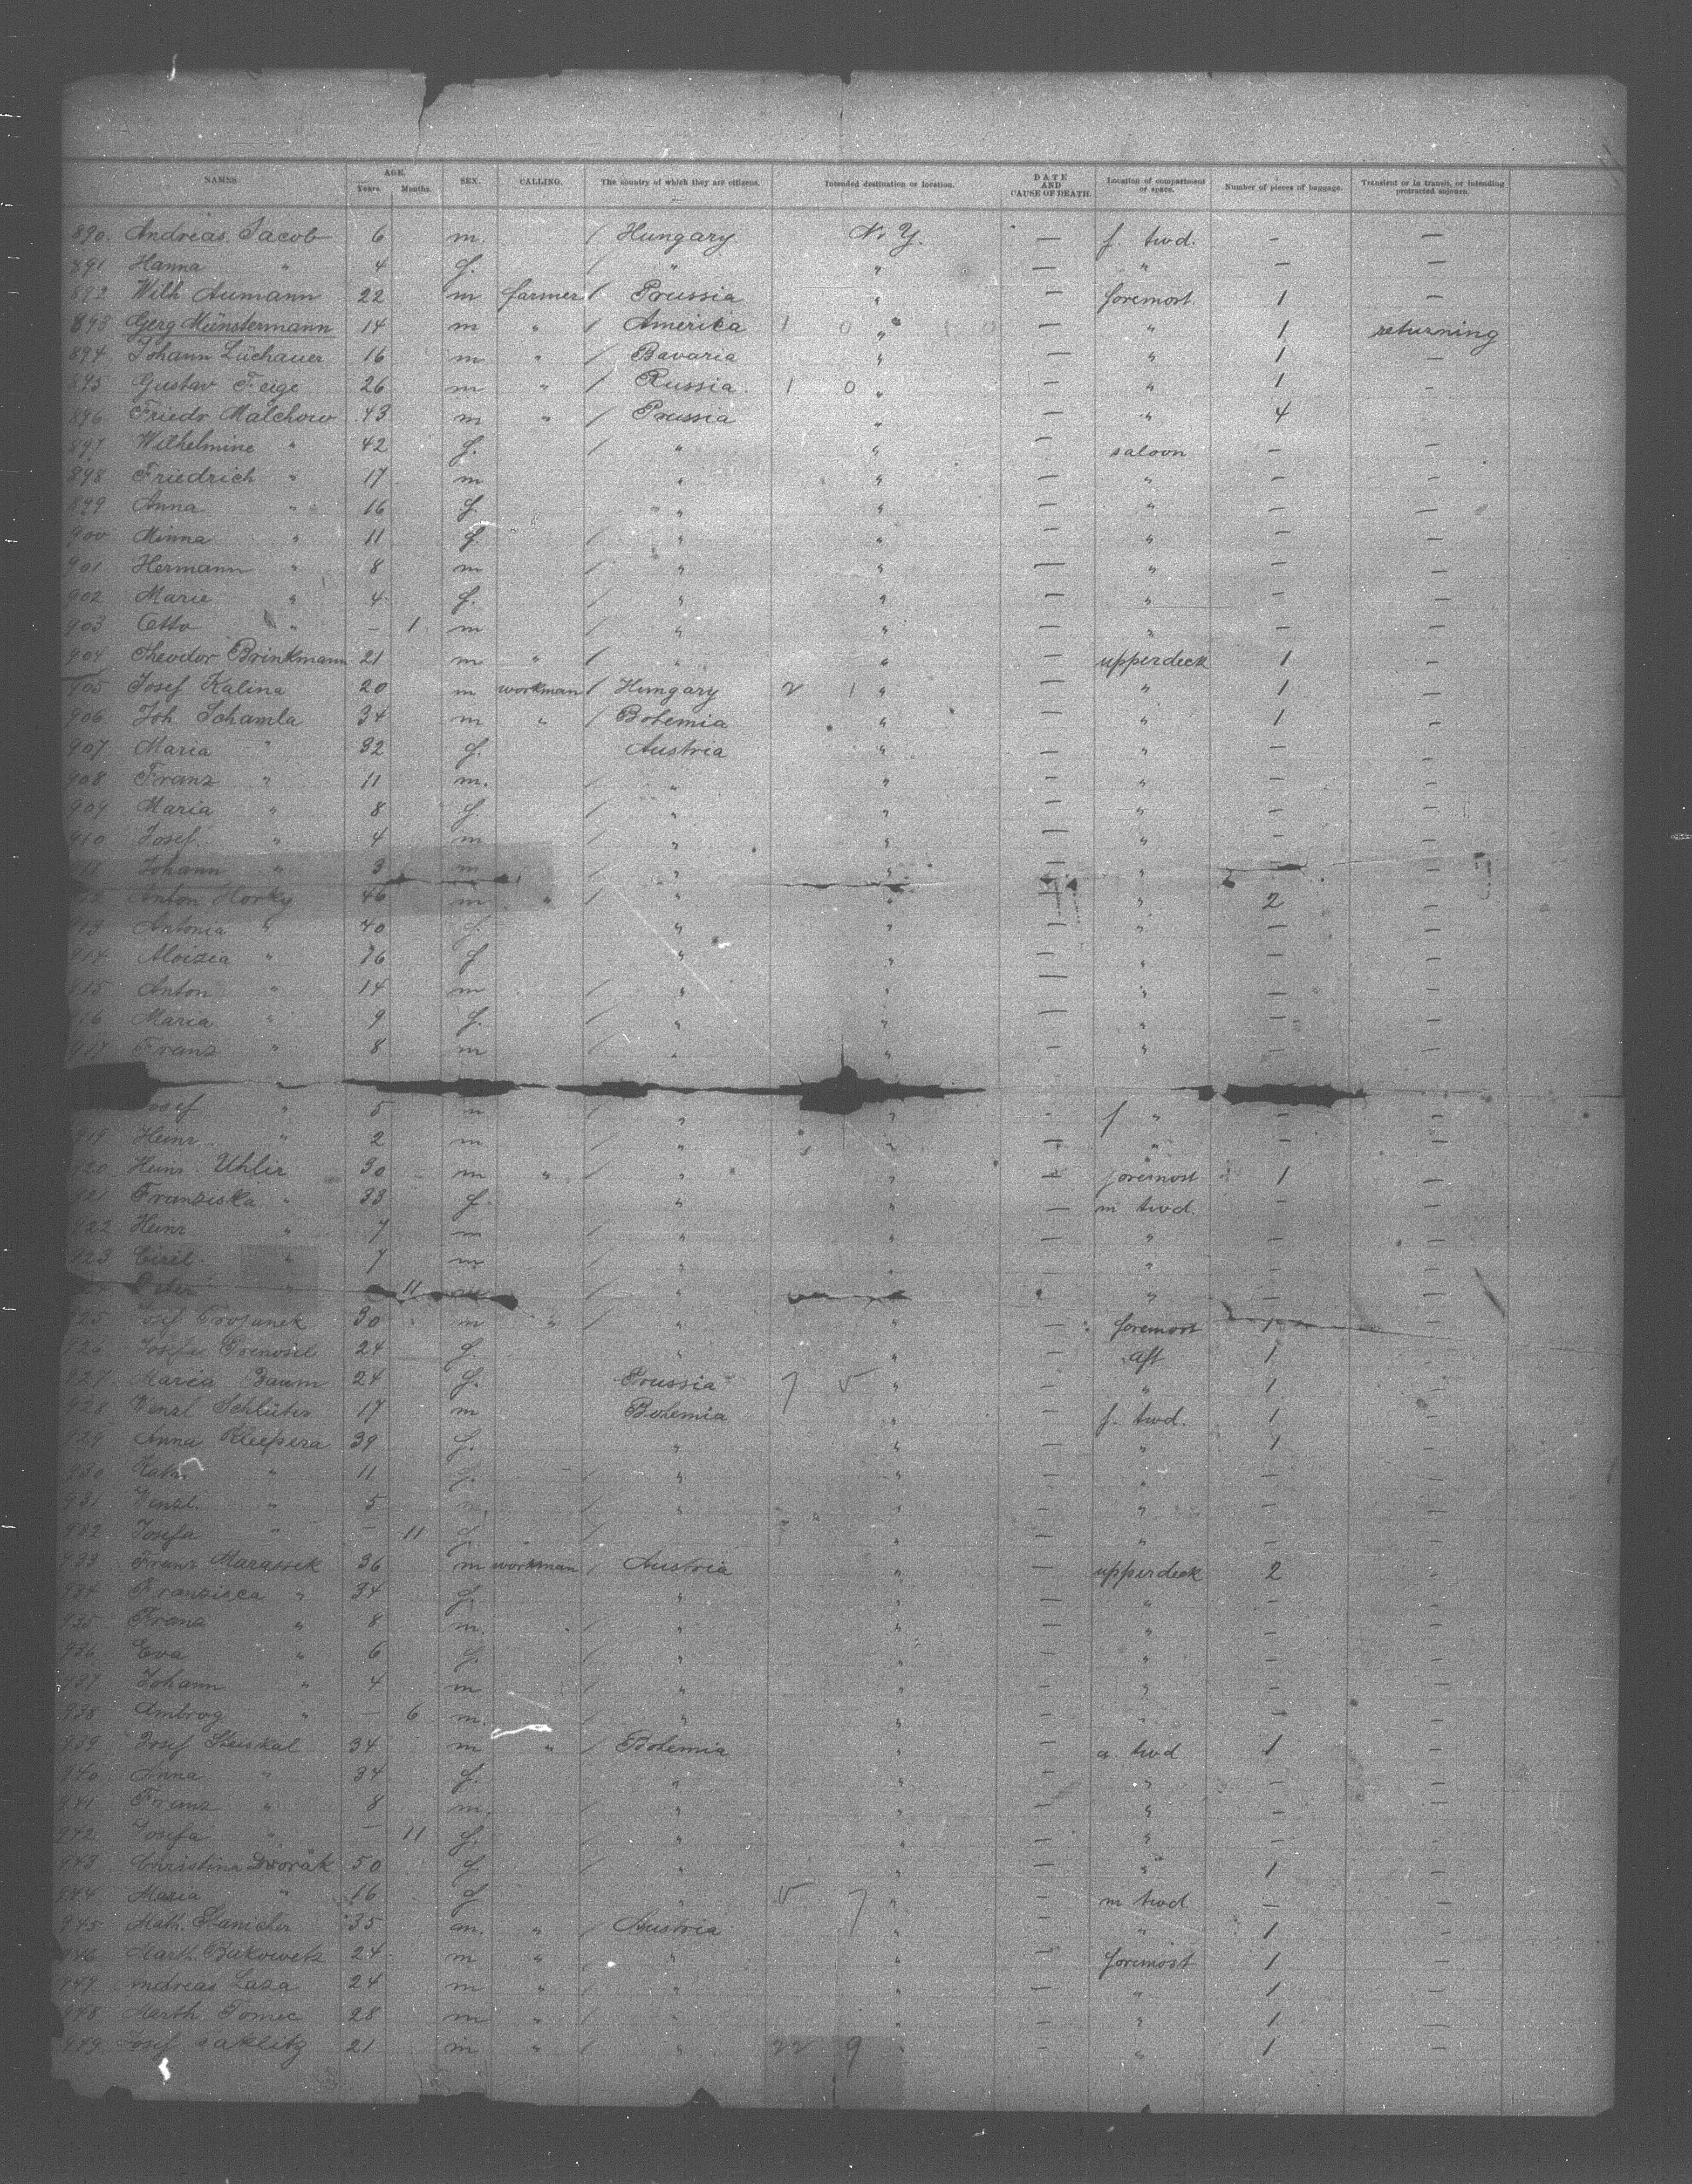 NAMES AGE. Years. Months. SEX. CALLING. The country of which they are citizens. Intended destination or location. DATE AND CAUSE OF DEATH. Location of compartment or space. Number of pieces of baggage. Transient or in transit, or intending protracted sojourn.
890. Andreas Jacob 6 m. / Hungary N. Y. — f. twd. — —
891 Hanna " 4 f. / " " — " — —
892 Wilh Aumann 22 m farmer / Prussia " — foremost. 1 —
893 Gerg Münstermann 14 m " / Amerika 1 0 " 1 0 — " 1 returning
894 Johann Lüchauer 16 m " / Bavaria " — " 1 —
895 Gustav Feige 26 m " / Russia. 1 0 " — " 1 —
896 Friedr Malchow 43 m " / Prussia " — " 4 —
897 Wilhelmine " 42 f. / " " — saloon — —
898 Friedrich " 17 m " " — " — —
899 Anna " 16 f. " " — " — —
900 Minna " 11 f. / " " — " — —
901 Hermann " 8 m / " " — " — —
902 Marie " 4 f. / " " — " — —
903 Otto " — 1 m / " " — " — —
904 Theodor Brinkmann 21 m " / " " — upperdeck 1 —
905 Josef Kalina 20 m workman / Hungary 2 1 " — " 1 —
906 Joh Schamla 34 m " / Bohemia " — " 1 —
907 Maria " 32 f. Austria " — " — —
908 Franz " 11 m. / " " — " — —
909 Maria " 8 f. / " " — " — —
910 Josef. " 4 m / " " — " — —
911 Johann " 3 m / " " — " — —
912 Anton Horky 46 m " / " " — " 2 —
913 Antonia " 40 f. " " — " — —
914 Aloizia " 16 f " " — " — —
915 Anton " 14 m / " " — " — —
916 Maria " 9 f. / " " — " — —
917 Franz " 8 m / " " — " — —
Josef " 5 m / " " — f " — —
919 Heinr. " 2 m / " " — " — —
920 Heinr. Uhlir 30 m " / " " — foremost 1 —
921 Franziska " 33 f. " " — m twd. — —
922 Heinr " 7 m / " " — " — —
923 Ciril. " 7 m / " " — " — —
924 Peter " 11 m / " " — " — —
925 Josef Trojanek 30 m " / " " — foremost 1 —
926 Josefa 24 f. " " — aft 1 —
927 Maria Baum 24 f. Prussia 7 " — " 1 —
928 Wenzl Schlüter 17 m Bohemia " — f. twd. 1 —
929 Anna 39 f. " " — " 1 —
930 Kath. " 11 f. / " " — " — —
931 Wenzl. " 5 m / " " — " — —
932 Josefa " — 11 f. / " — " — —
933 Franz Marassek 36 m workman / Austria " — upperdeck 2 —
934 Franzisca " 34 f. " " — " — —
935 Franz " 8 m. / " " — " — —
936 Eva " 6 f. / " " — " — —
937 Johann " 4 m / " " — " — —
938 Ambrog " — 6 m. / " " — " — —
939 Josef Steiskal 34 m " / Bohemia " — a. twd 1 —
940 Anna " 34 f. " " — " — —
941 Franz " 8 m. / " " — " — —
942 Josefa " — 11 f. / " " — " — —
943 Christina Dvorák 50 f. / " " — " 1 —
944 Maria " 16 f " 7 " — m twd — —
945 Math. Stanicher 35 m. " / Austria " — " 1 —
946 Marth. Bukowetz 24 m " / " " — foremost 1 —
947 Andreas Laza 24 m " / " " — " 1 —
948 Marth Tomec 28 m " / " " — " 1 —
949 Josef 21 m " / " 22 9 " — " 1 —